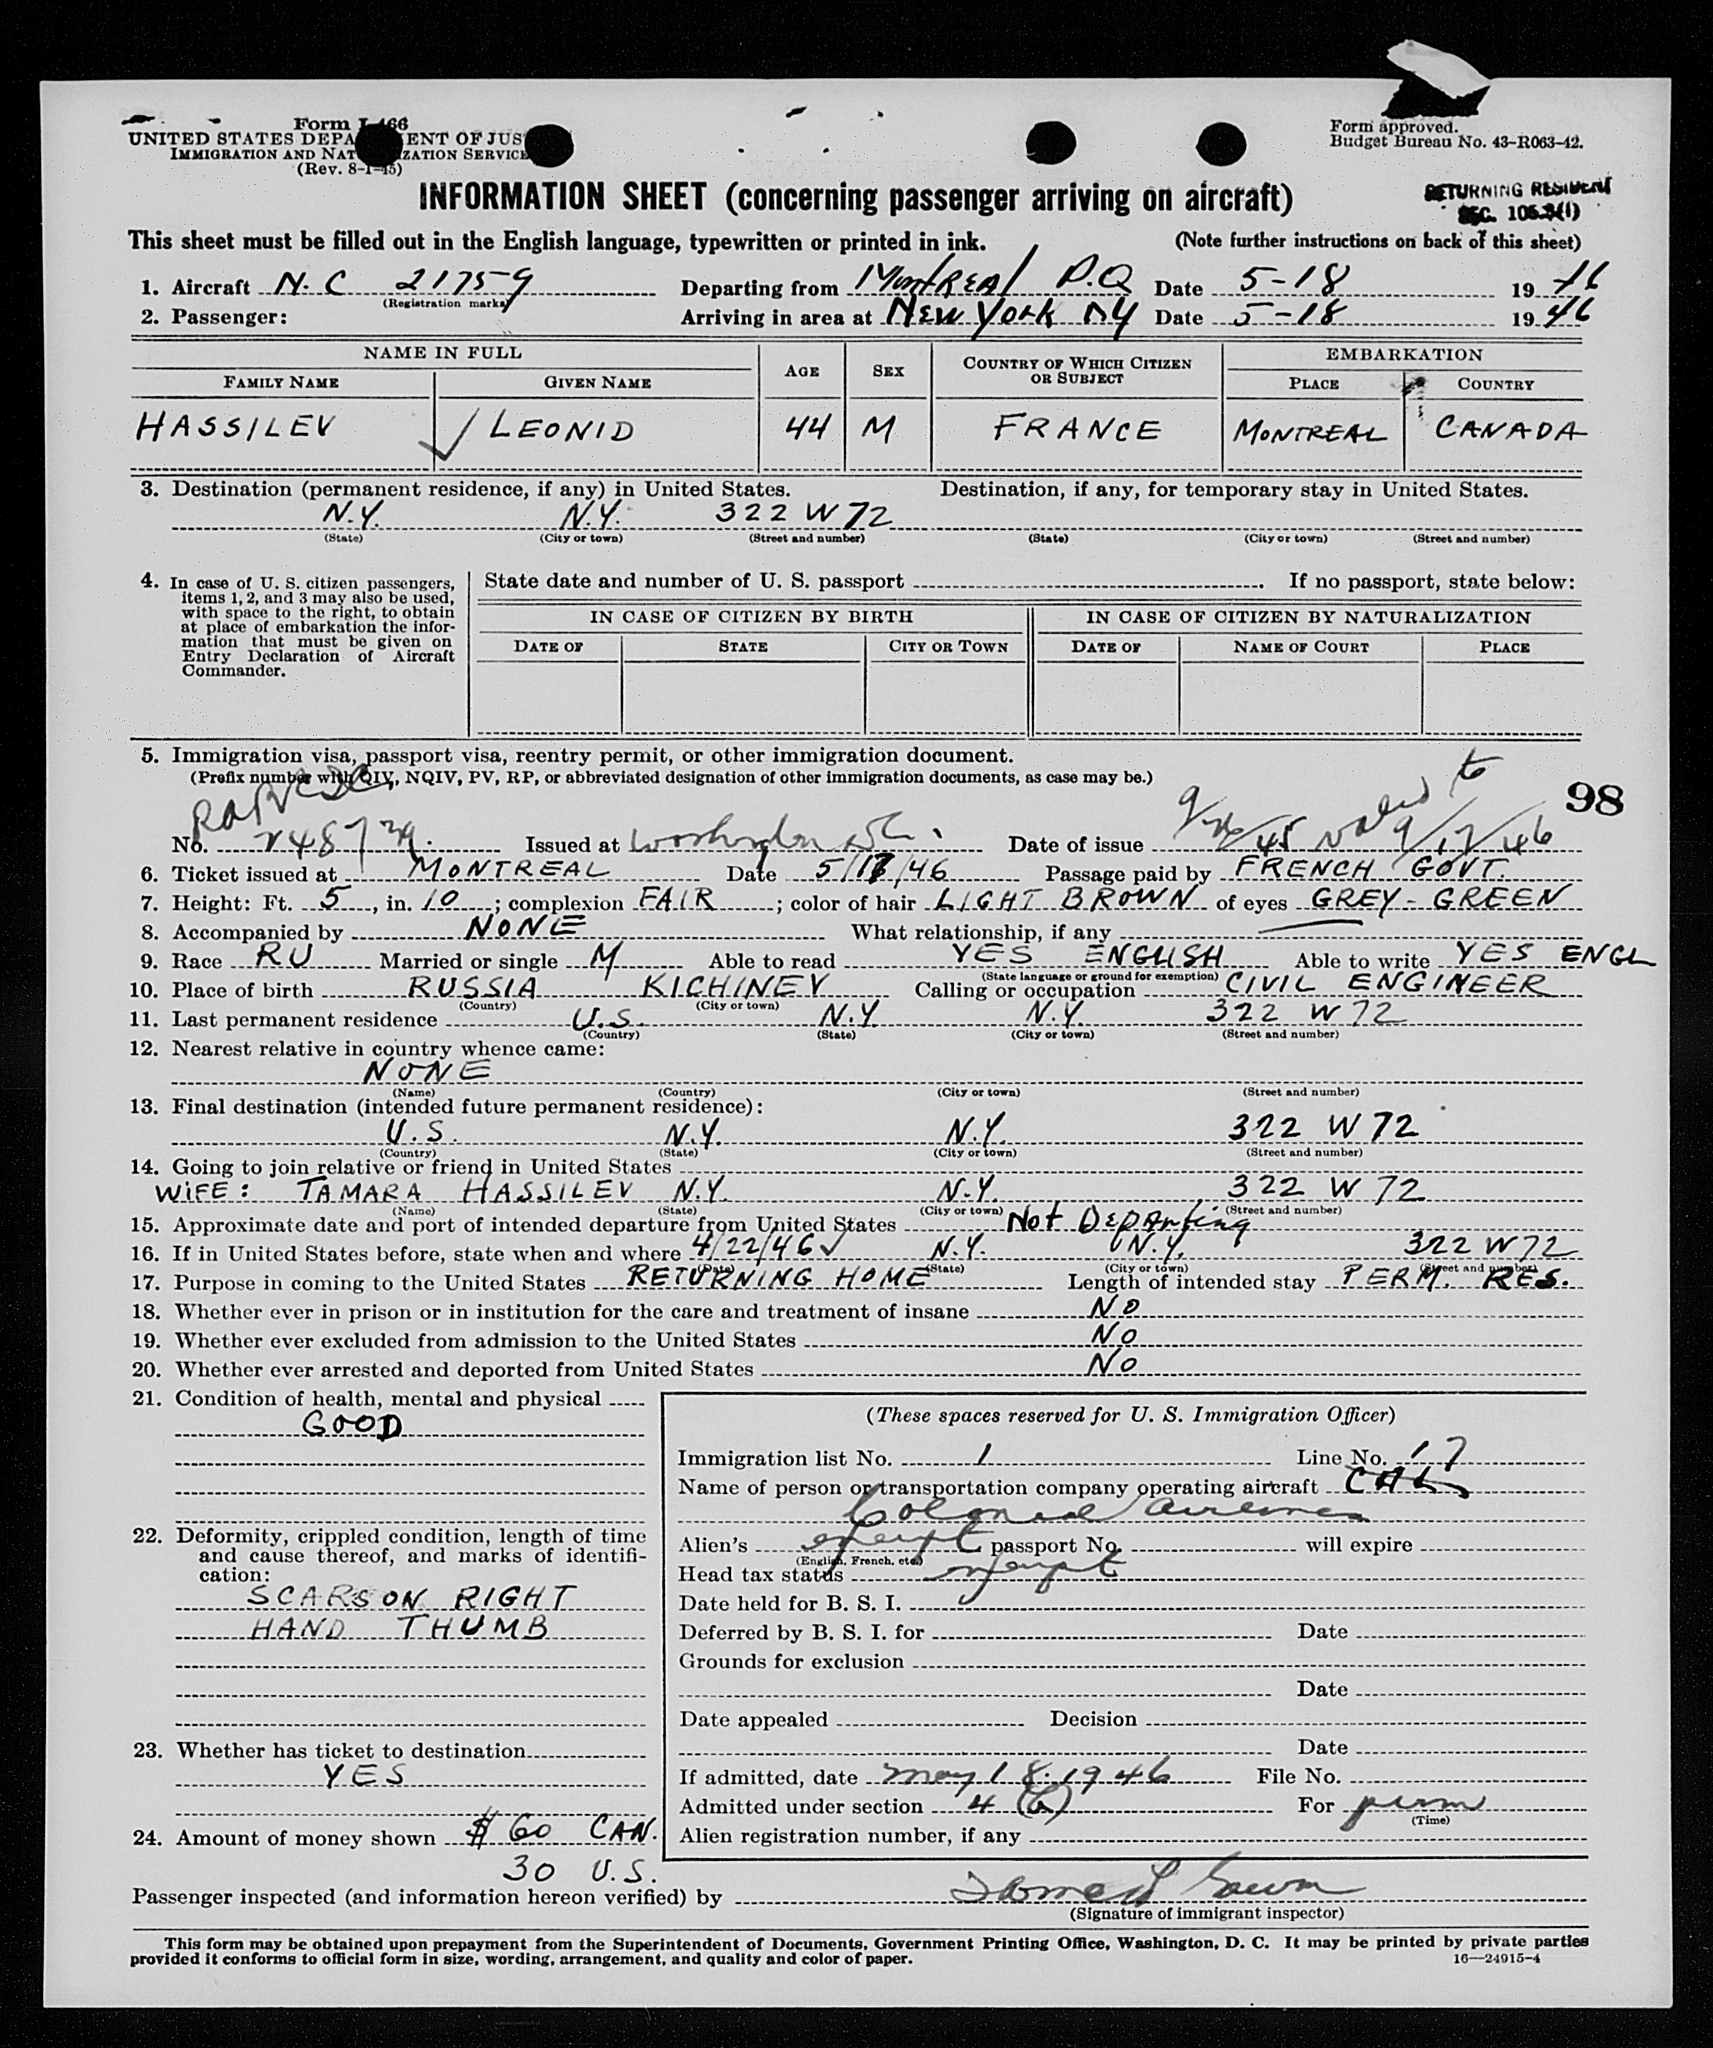 Form I-466
UNITED STATES DEPARTMENT OF JUSTICE
IMMIGRATION AND NATURALIZATION SERVICE
(Rev. 8-1-45)
Form approved.
Budget Bureau No. 43-R063-42.
INFORMATION SHEET (concerning passenger arriving on aircraft)
RETURNING RESIDENT
SEC. 105.3(1)
This sheet must be filled out in the English language, typewritten or printed in ink. (Note further instructions on back of this sheet)
1. Aircraft N.C 21759 Departing from MONTREAL P.Q Date 5-18 1946
(Registration marks)
2. Passenger: Arriving in area at NEW YORK NY Date 5-18 1946
NAME IN FULL AGE SEX COUNTRY OF WHICH CITIZEN OR SUBJECT EMBARKATION
FAMILY NAME GIVEN NAME PLACE COUNTRY
HASSILEV LEONID 44 M FRANCE MONTREAL CANADA
3. Destination (permanent residence, if any) in United States. Destination, if any, for temporary stay in United States.
N.Y. N.Y. 322 W 72
(State) (City or town) (Street and number) (State) (City or town) (Street and number)
4. In case of U. S. citizen passengers, items 1, 2, and 3 may also be used, with space to the right, to obtain at place of embarkation the information that must be given on Entry Declaration of Aircraft Commander.
State date and number of U. S. passport . If no passport, state below:
IN CASE OF CITIZEN BY BIRTH IN CASE OF CITIZEN BY NATURALIZATION
DATE OF STATE CITY OR TOWN DATE OF NAME OF COURT PLACE
5. Immigration visa, passport visa, reentry permit, or other immigration document.
(Prefix number with QIV, NQIV, PV, RP, or abbreviated designation of other immigration documents, as case may be.)
98
No. Issued at Washington DC. Date of issue 9/17/46
6. Ticket issued at MONTREAL Date 5/17/46 Passage paid by FRENCH GOVT.
7. Height: Ft. 5, in. 10; complexion FAIR; color of hair LIGHT BROWN of eyes GREY-GREEN
8. Accompanied by NONE What relationship, if any —
9. Race RU Married or single M Able to read YES ENGLISH Able to write YES ENGL
(State language or ground for exemption)
10. Place of birth RUSSIA KICHINEV Calling or occupation CIVIL ENGINEER
(Country) (City or town)
11. Last permanent residence U.S. N.Y. N.Y. 322 W 72
(Country) (State) (City or town) (Street and number)
12. Nearest relative in country whence came:
NONE
(Name) (Country) (City or town) (Street and number)
13. Final destination (intended future permanent residence):
U.S. N.Y. N.Y. 322 W 72
(Country) (State) (City or town) (Street and number)
14. Going to join relative or friend in United States
WIFE: TAMARA HASSILEV N.Y. N.Y. 322 W 72
(Name) (State) (City or town) (Street and number)
15. Approximate date and port of intended departure from United States Not DEPARting
16. If in United States before, state when and where 4/22/46 N.Y. N.Y. 322 W 72
(Date) (State) (City or town) (Street and number)
17. Purpose in coming to the United States RETURNING HOME Length of intended stay PERM. RES.
18. Whether ever in prison or in institution for the care and treatment of insane NO
19. Whether ever excluded from admission to the United States NO
20. Whether ever arrested and deported from United States NO
21. Condition of health, mental and physical
GOOD
22. Deformity, crippled condition, length of time and cause thereof, and marks of identification:
SCARS ON RIGHT
HAND THUMB
23. Whether has ticket to destination
YES
24. Amount of money shown $ 60 CAN.
30 U.S.
(These spaces reserved for U. S. Immigration Officer)
Immigration list No. 1 Line No. 17
Name of person or transportation company operating aircraft CAL
Colonial Airlines
Alien's exempt passport No. will expire
(English, French, etc.)
Head tax status exempt
Date held for B. S. I.
Deferred by B. S. I. for Date
Grounds for exclusion
Date
Date appealed Decision
Date
If admitted, date May 18. 1946 File No.
Admitted under section 4 (b) For perm
(Time)
Alien registration number, if any
Passenger inspected (and information hereon verified) by
(Signature of immigrant inspector)
This form may be obtained upon prepayment from the Superintendent of Documents, Government Printing Office, Washington, D. C. It may be printed by private parties
provided it conforms to official form in size, wording, arrangement, and quality and color of paper. 16—24915-4